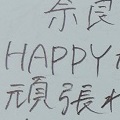 奈良
HAPPY
頑張れ